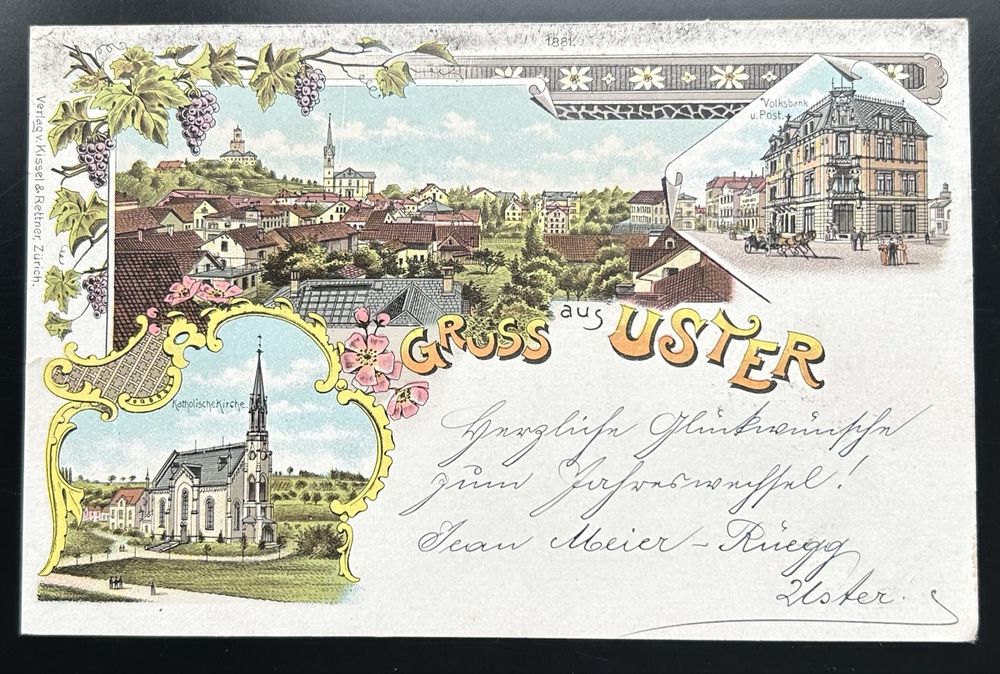 1881.
Verlag v. Kissel & Rettner, Zürich.
Volksbank
u. Post.
GRUSS aus USTER
Katholische Kirche
Herzliche Glückwünsche
zum Jahreswechsel!
Jean Meier-Rüegg
Uster.